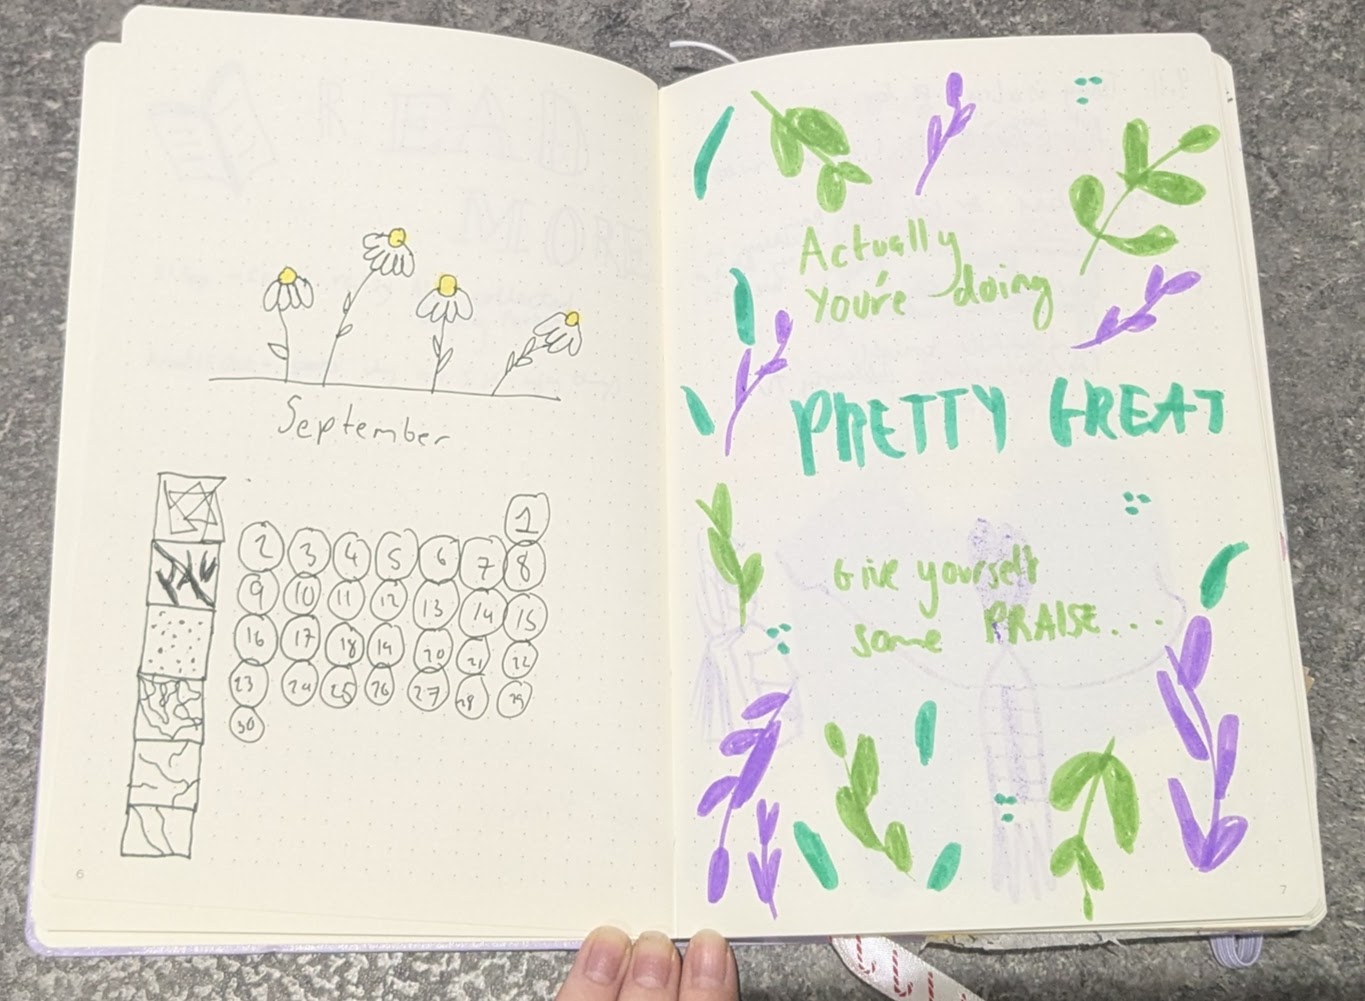 READ
MORE
September
1
2 3 4 5 6 7 8
9 10 11 12 13 14 15
16 17 18 19 20 21 22
23 24 25 26 27 28 29
30
6
Actually
You're doing
PRETTY GREAT
Give yourself
some PRAISE...
7